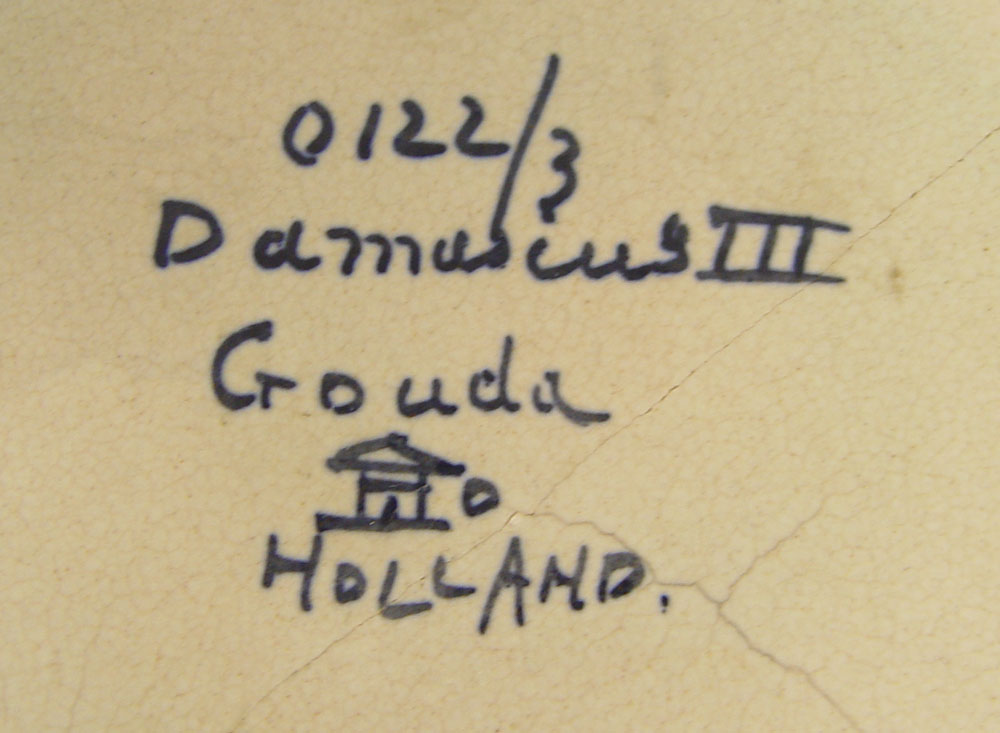 0122/3
Damascus III
Gouda
D
HOLLAND.